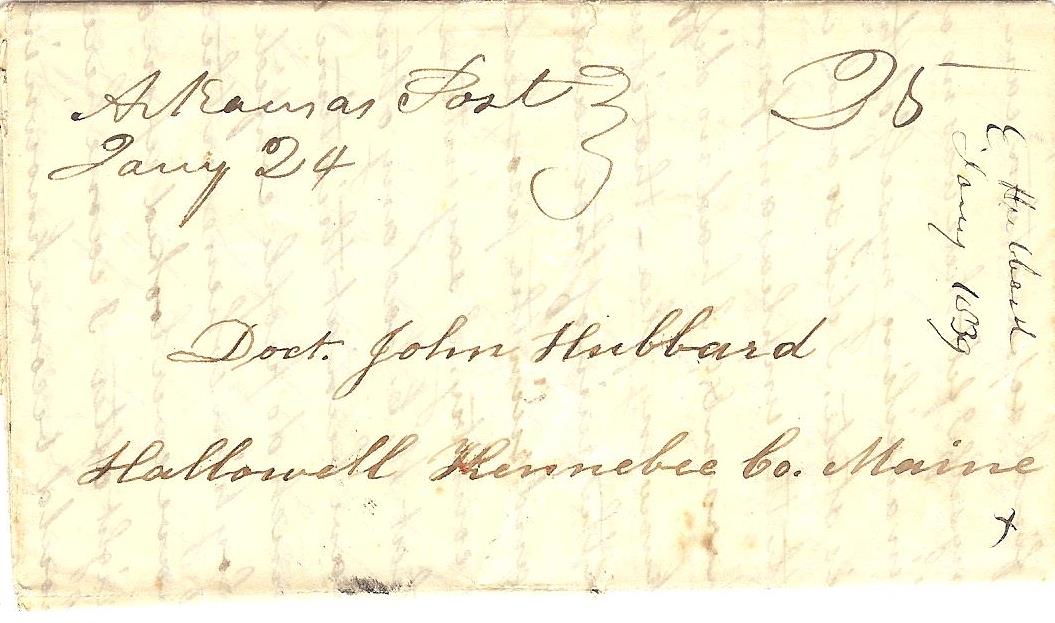 Arkansas Post
Jany 24
25
Doct. John Hubbard
Hallowell Kennebec Co. Maine
E Hubbard
Jany 1839
x